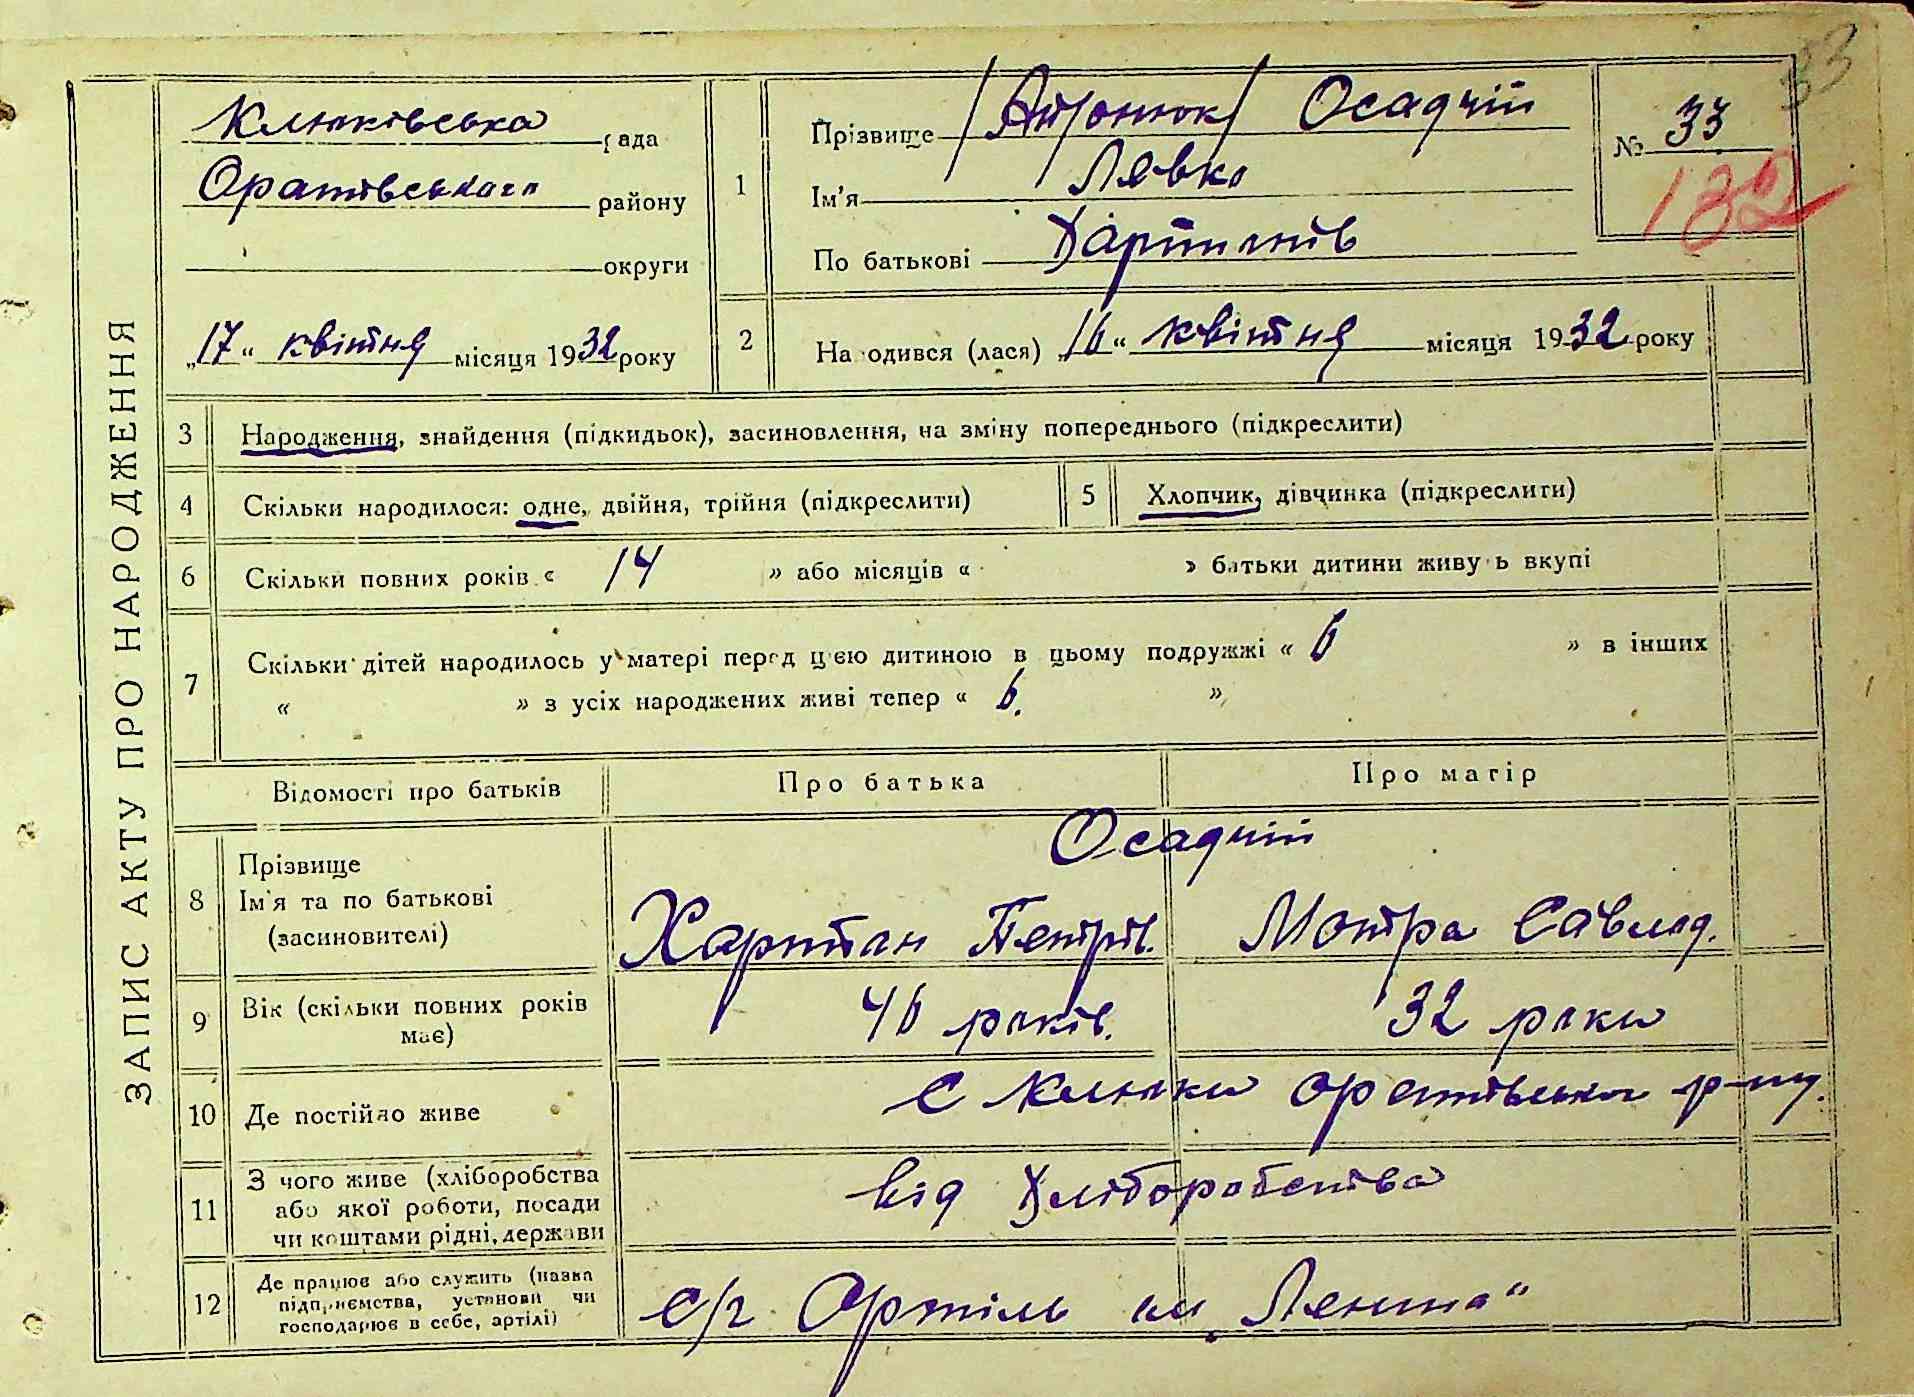 33
ЗАПИС АКТУ ПРО НАРОДЖЕННЯ
Клюківська рада
Оратівського району
округи
„17“ квітня місяця 1932 року
1
Прізвище /Антонюк/ Осадчій
Ім'я Лявко
По батькові Хартинів
№ 33
132
2
Народився (лася) „16“ квітня місяця 1932 року
3
Народження, знайдення (підкидьок), засиновлення, на зміну попереднього (підкреслити)
4
Скільки народилося: одне, двійня, трійня (підкреслити)
5
Хлопчик, дівчинка (підкреслити)
6
Скільки повних років « 14 » або місяців « » батьки дитини живуть вкупі
7
Скільки дітей народилось у матері перед цією дитиною в цьому подружжі « 6 » в інших
« » з усіх народжених живі тепер « 6. »
Відомості про батьків
Про батька
Про матір
8
Прізвище
Ім'я та по батькові
(засиновителі)
Осадчій
Харитан Петрів.
Мотра Савлад.
9
Вік (скільки повних років
має)
46 років.
32 роки
10
Де постійно живе
с Клюки Оратівського р-ну.
11
З чого живе (хліборобства
або якої роботи, посади
чи коштами рідні, держави
від Хліборобства
12
Де працює або служить (назва
підприємства, установи чи
господарює в себе, артілі)
с/г Артіль ім „Леніна“